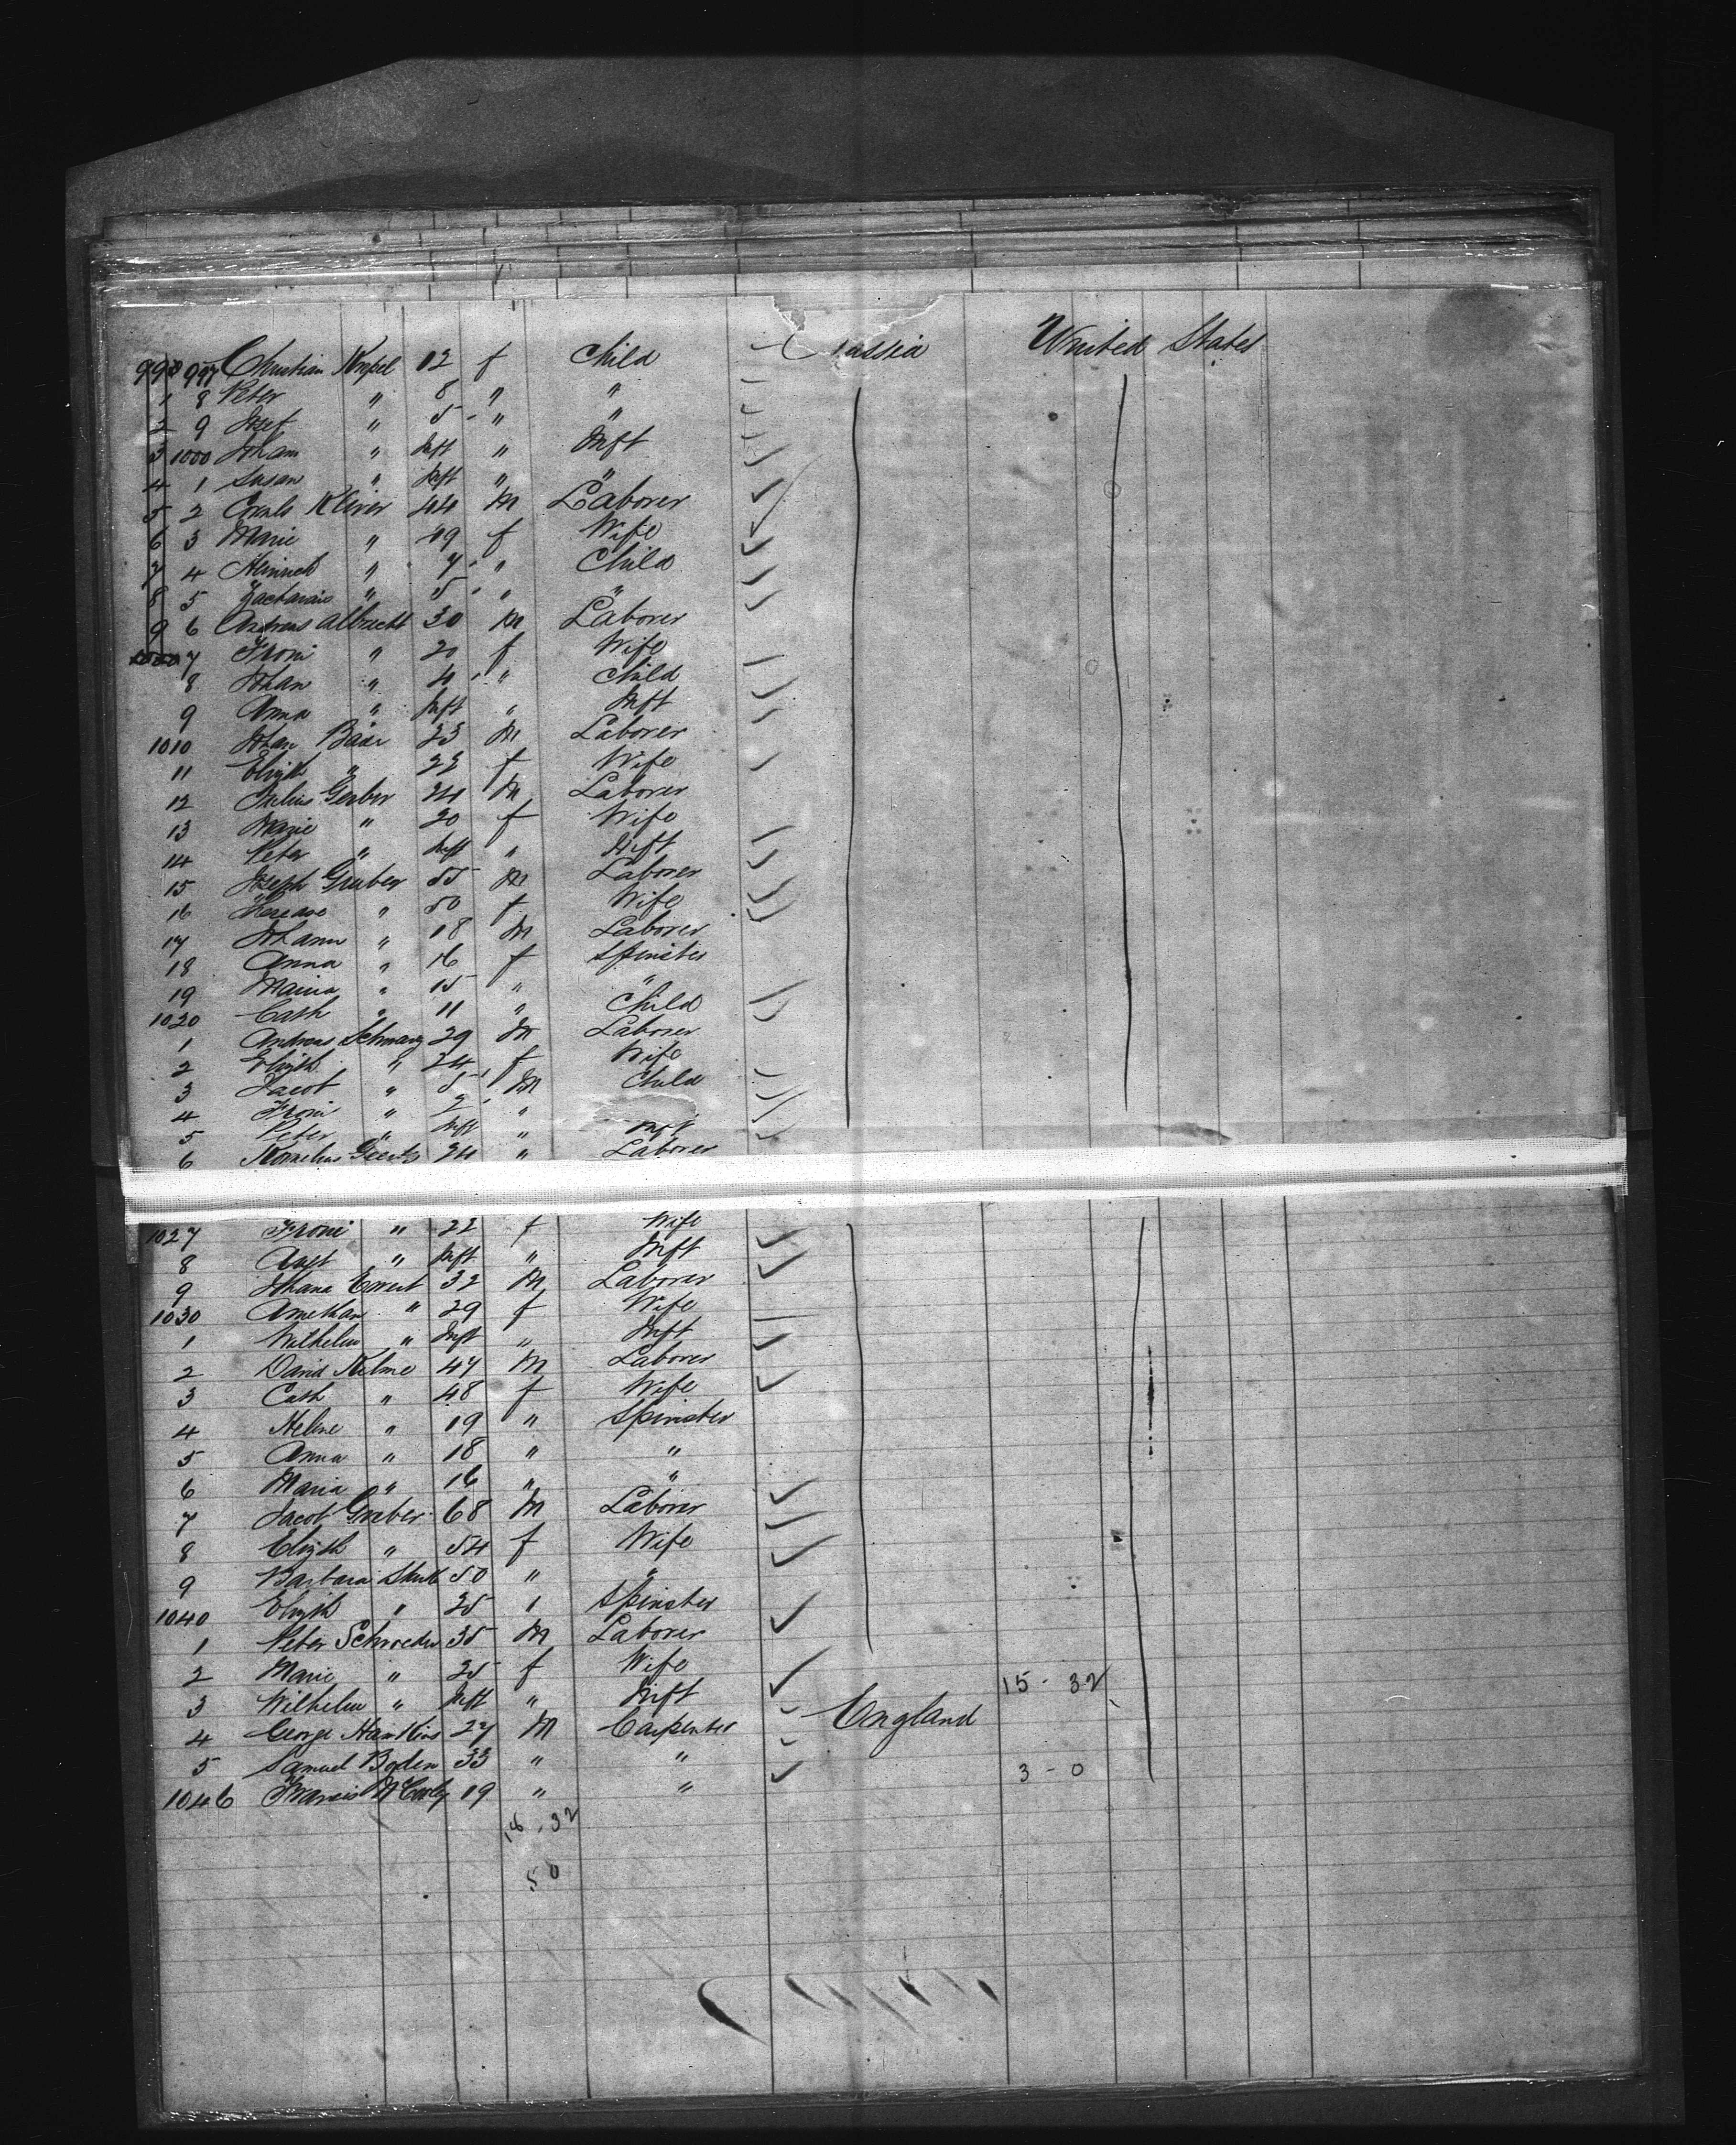 990 997 Christian Krepel 12 f Child Russia United States
1 8 Peter " 8 " "
2 9 " 5 " "
3 1000 Johann " Inft " Inft
4 1 Susan " Inft " "
5 2 Kliver 44 M Laborer
6 3 Marie " 19 f Wife
7 4 Heinrich " 7 " Child
8 5 Zacharais " 5 " "
9 6 Andreas Albrecht 30 M Laborer
7 Froni " 20 f Wife
8 Johan " 4 " Child
9 Anna " Inft " Inft
1010 Johan Baür 23 M Laborer
11 Elizth " 22 f Wife
12 Julius Gerber 24 M Laborer
13 Marie " 20 f Wife
14 Peter " Inft " Inft
15 Joseph Gruber 55 M Laborer
16 " 50 f Wife
17 Johann " 18 M Laborer
18 Anna " 16 f Spinster
19 Maria " 15 " "
1020 Cath " 11 " Child
1 Andreas Schwarz 29 M Laborer
2 Elizth " 24 f Wife
3 Jacob " 5 M Child
4 Froni " 2 "
5 Peter " Inft " Inft
6 Kornelius Goertz 24 " Laborer
1027 Froni " 22 f Wife
8 Augt " Inft " Inft
9 Johann Ewert 32 M Laborer
1030 " 29 f Wife
1 Wilhelm " Inft " Inft
2 David 47 M Laborer
3 Cath " 48 f Wife
4 Helene " 19 " Spinster
5 Anna " 18 " "
6 Maria " 16 " "
7 Jacob Graber 68 M Laborer
8 Elizth " 54 f Wife
9 Barbara 50 " "
1040 Elizth " 25 " Spinster
1 Peter Schroeder 35 M Laborer
2 Marie " 25 f Wife
3 Wilhelm " Inft " Inft 15 - 32
4 George Hawkins 27 M Carpenter England
5 Samuel Boden 33 " "
1046 Francis 19 " " 3 - 0
18 - 32
50